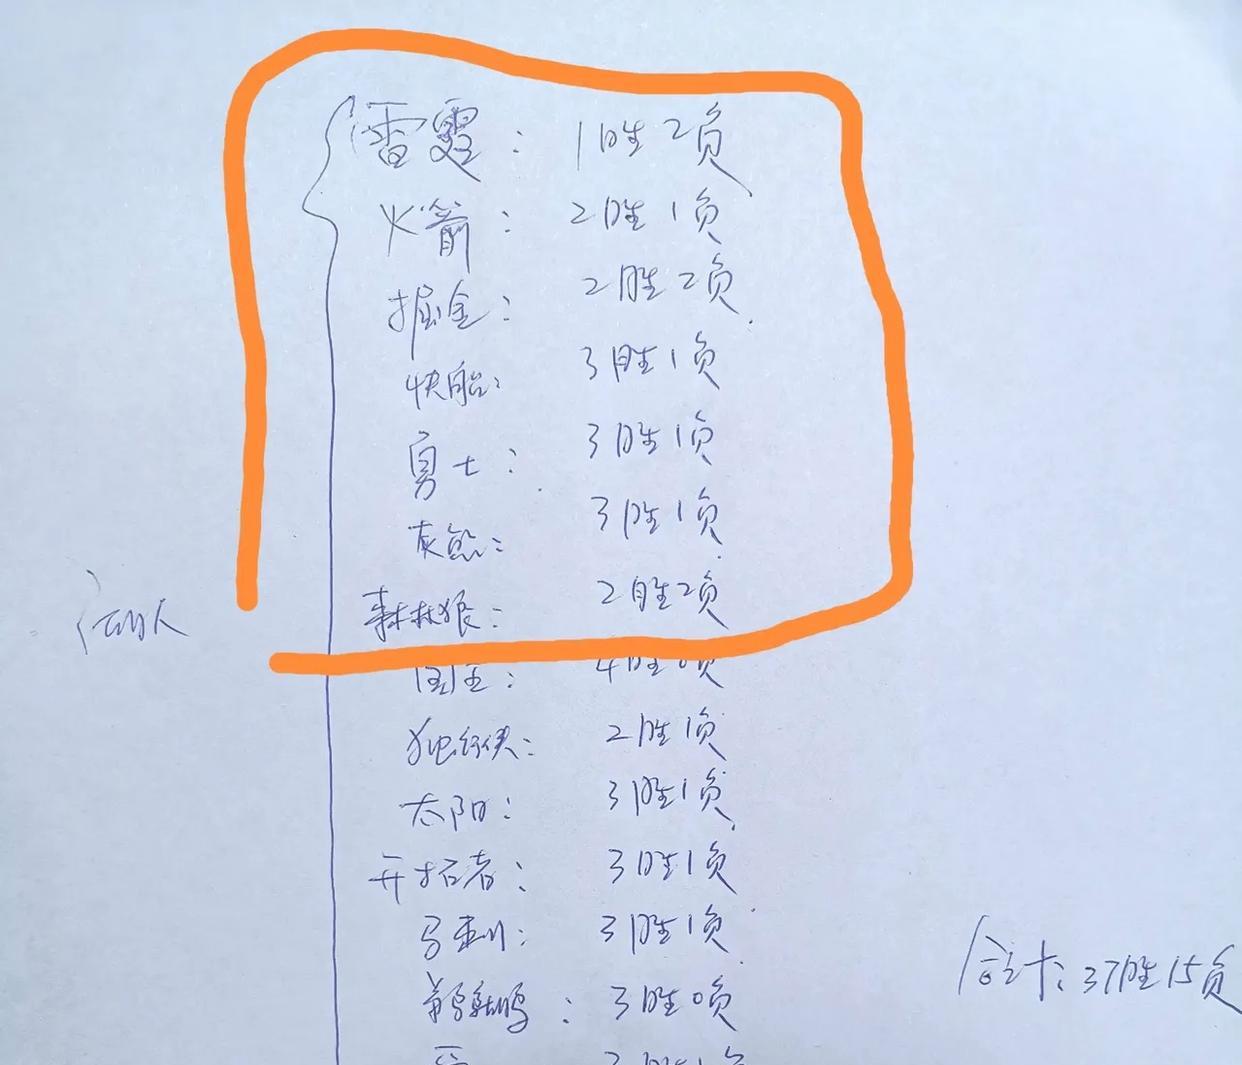 雷霆：1胜2负
火箭：2胜1负
掘金：2胜2负
快船：3胜1负
勇士：3胜1负
灰熊：3胜1负
森林狼：2胜2负
国王：4胜0负
独行侠：2胜1负
太阳：3胜1负
开拓者：3胜1负
马刺：3胜1负
鹈鹕：3胜0负
合计：37胜15负